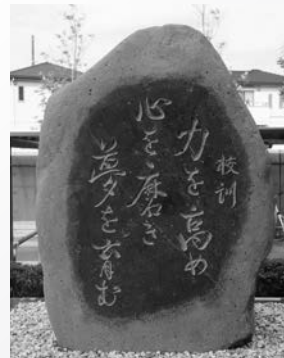 校訓
力を高め
心を磨き
夢を育む